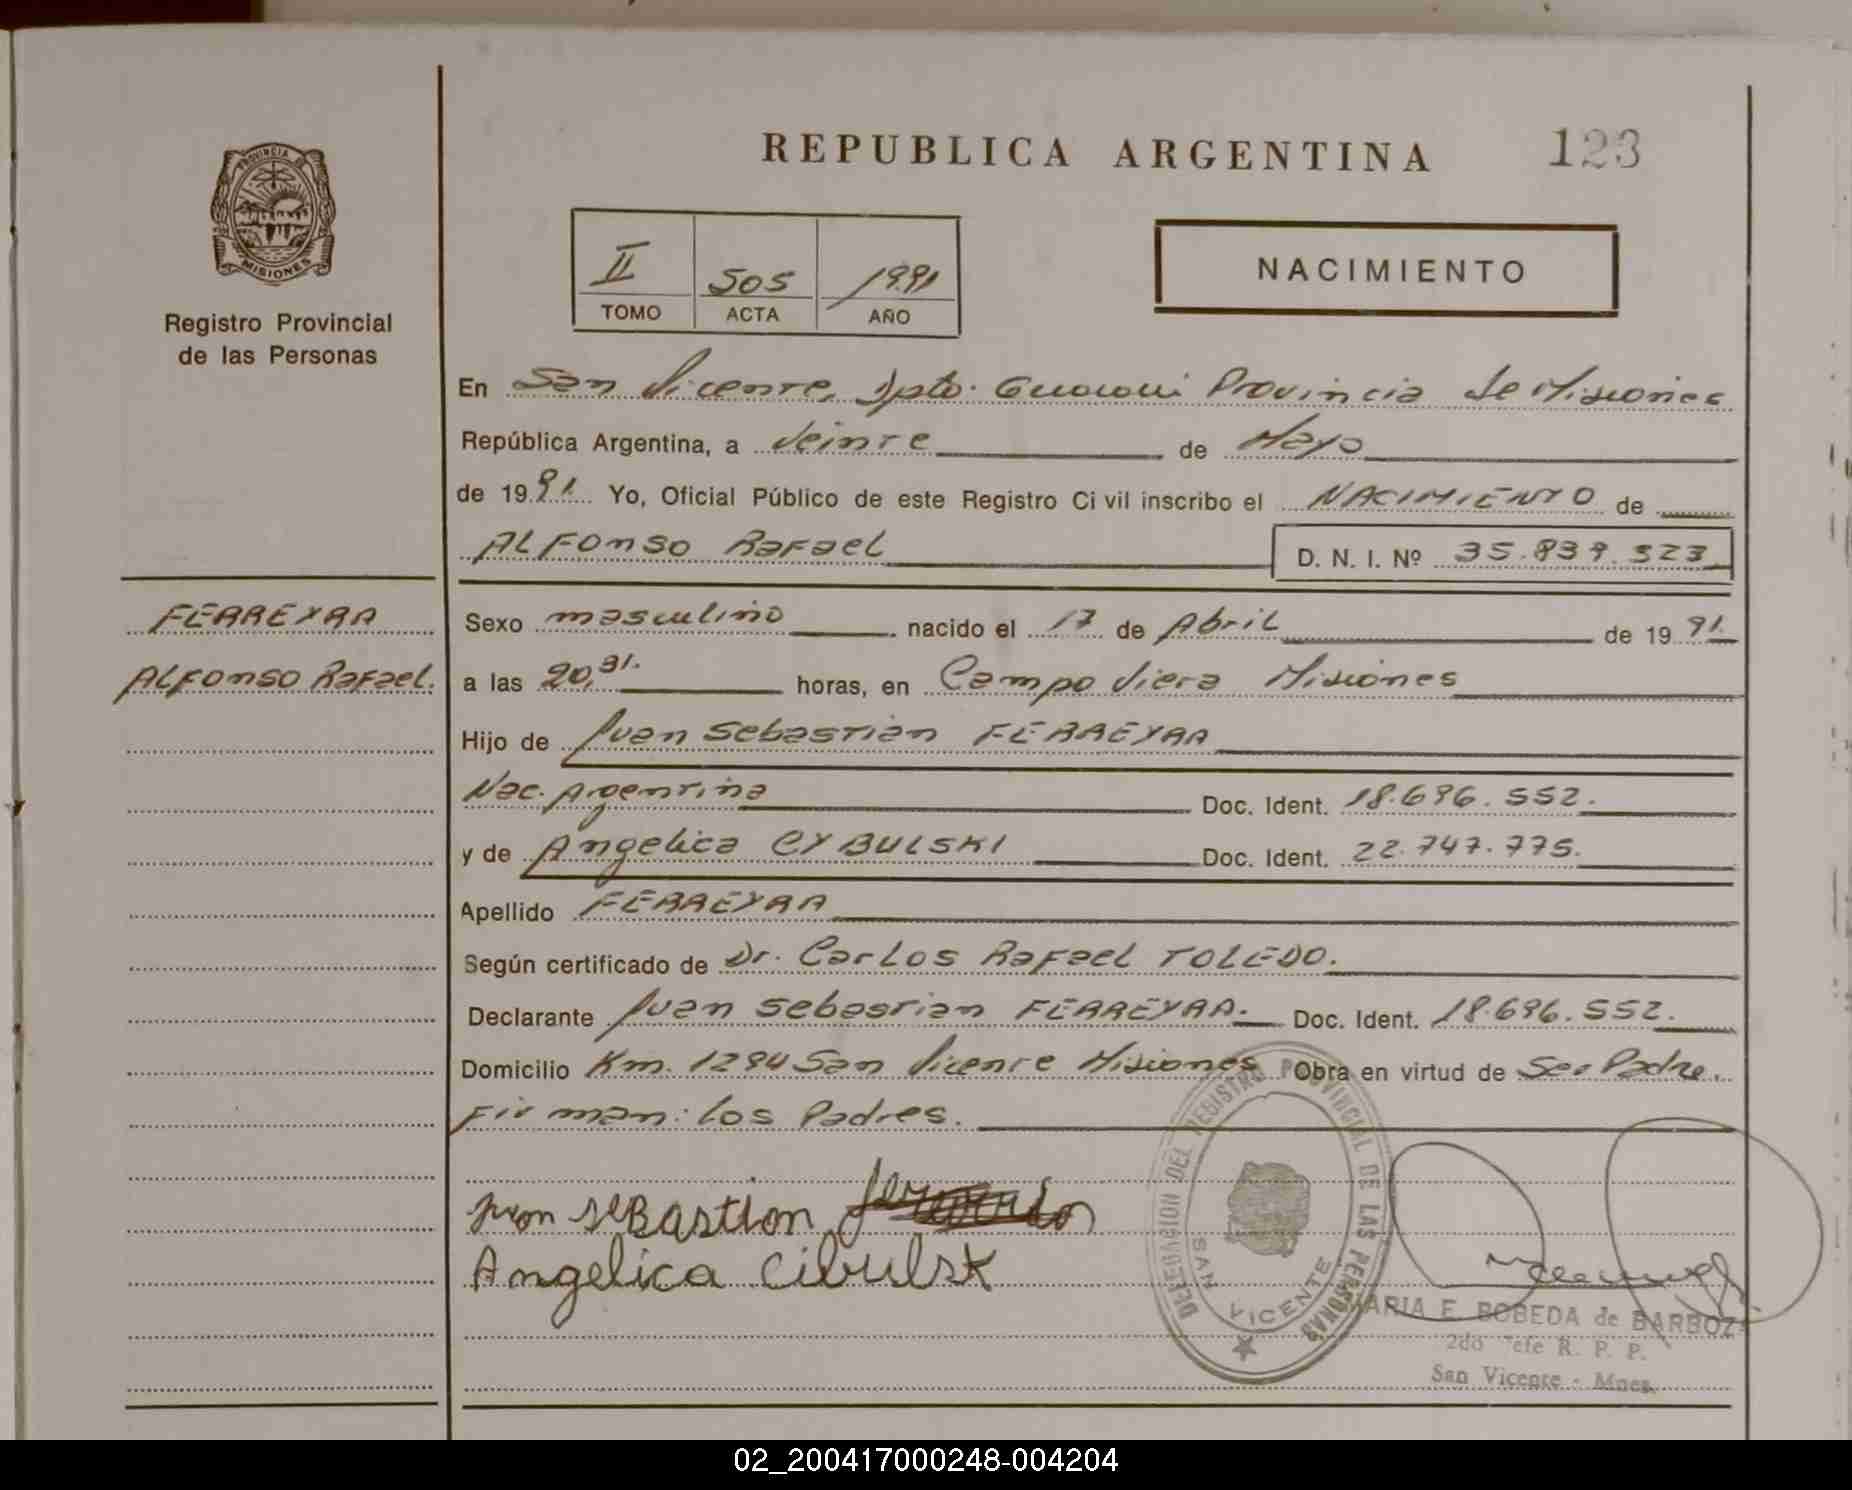 REPUBLICA ARGENTINA
123
PROVINCIA DE
MISIONES
Registro Provincial
de las Personas
II 505 1991
TOMO ACTA AÑO
NACIMIENTO
En San Vicente, Dpto. Guarani Provincia de Misiones
República Argentina, a Veinte de Mayo
de 1991. Yo, Oficial Público de este Registro Civil inscribo el NACIMIENTO de
ALFONSO RAFAEL D. N. I. Nº 35.839.323
FERREYRA
ALFONSO RAFAEL.
Sexo masculino nacido el 17 de Abril de 1991.
a las 20,31. horas, en Campo Viera Misiones
Hijo de Juan Sebastian FERREYRA
Nac. Argentina Doc. Ident. 18.696.552.
y de Angelica CYBULSKI Doc. Ident. 22.747.775.
Apellido FERREYRA
Según certificado de Dr. Carlos Rafael TOLEDO.
Declarante Juan Sebastian FERREYRA. Doc. Ident. 18.696.552.
Domicilio Km. 1294 San Vicente Misiones Obra en virtud de Ser Padre.
Firman: los Padres.
Juan SEBAStIan
Angelica Cibulsk
DELEGACION DEL REGISTRO PROVINCIAL DE LAS PERSONAS
SAN VICENTE
MARIA E. BOBEDA de BARBOZA
2do Jefe R. P. P.
San Vicente - Mnes.
02_200417000248-004204